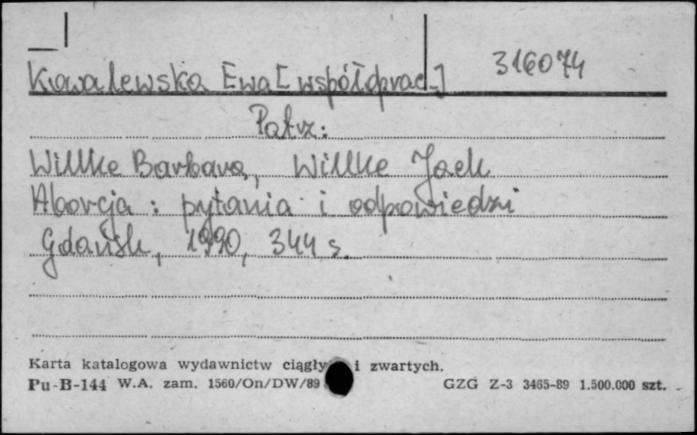 Kowalewska Ewa [współprac.] 316074
Patrz:
Willke Barbara, Willke Jack
Aborcja : pytania i odpowiedzi
Gdańsk, 1990, 344 s.
Karta katalogowa wydawnictw ciągły i zwartych.
Pu-B-144 W.A. zam. 1560/On/DW/89 GZG Z-3 3465-89 1.500.000 szt.